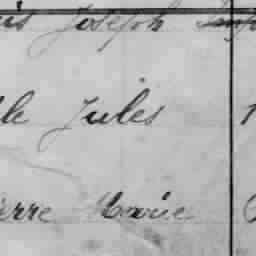 is Joseph
le Jules
ierre Marie